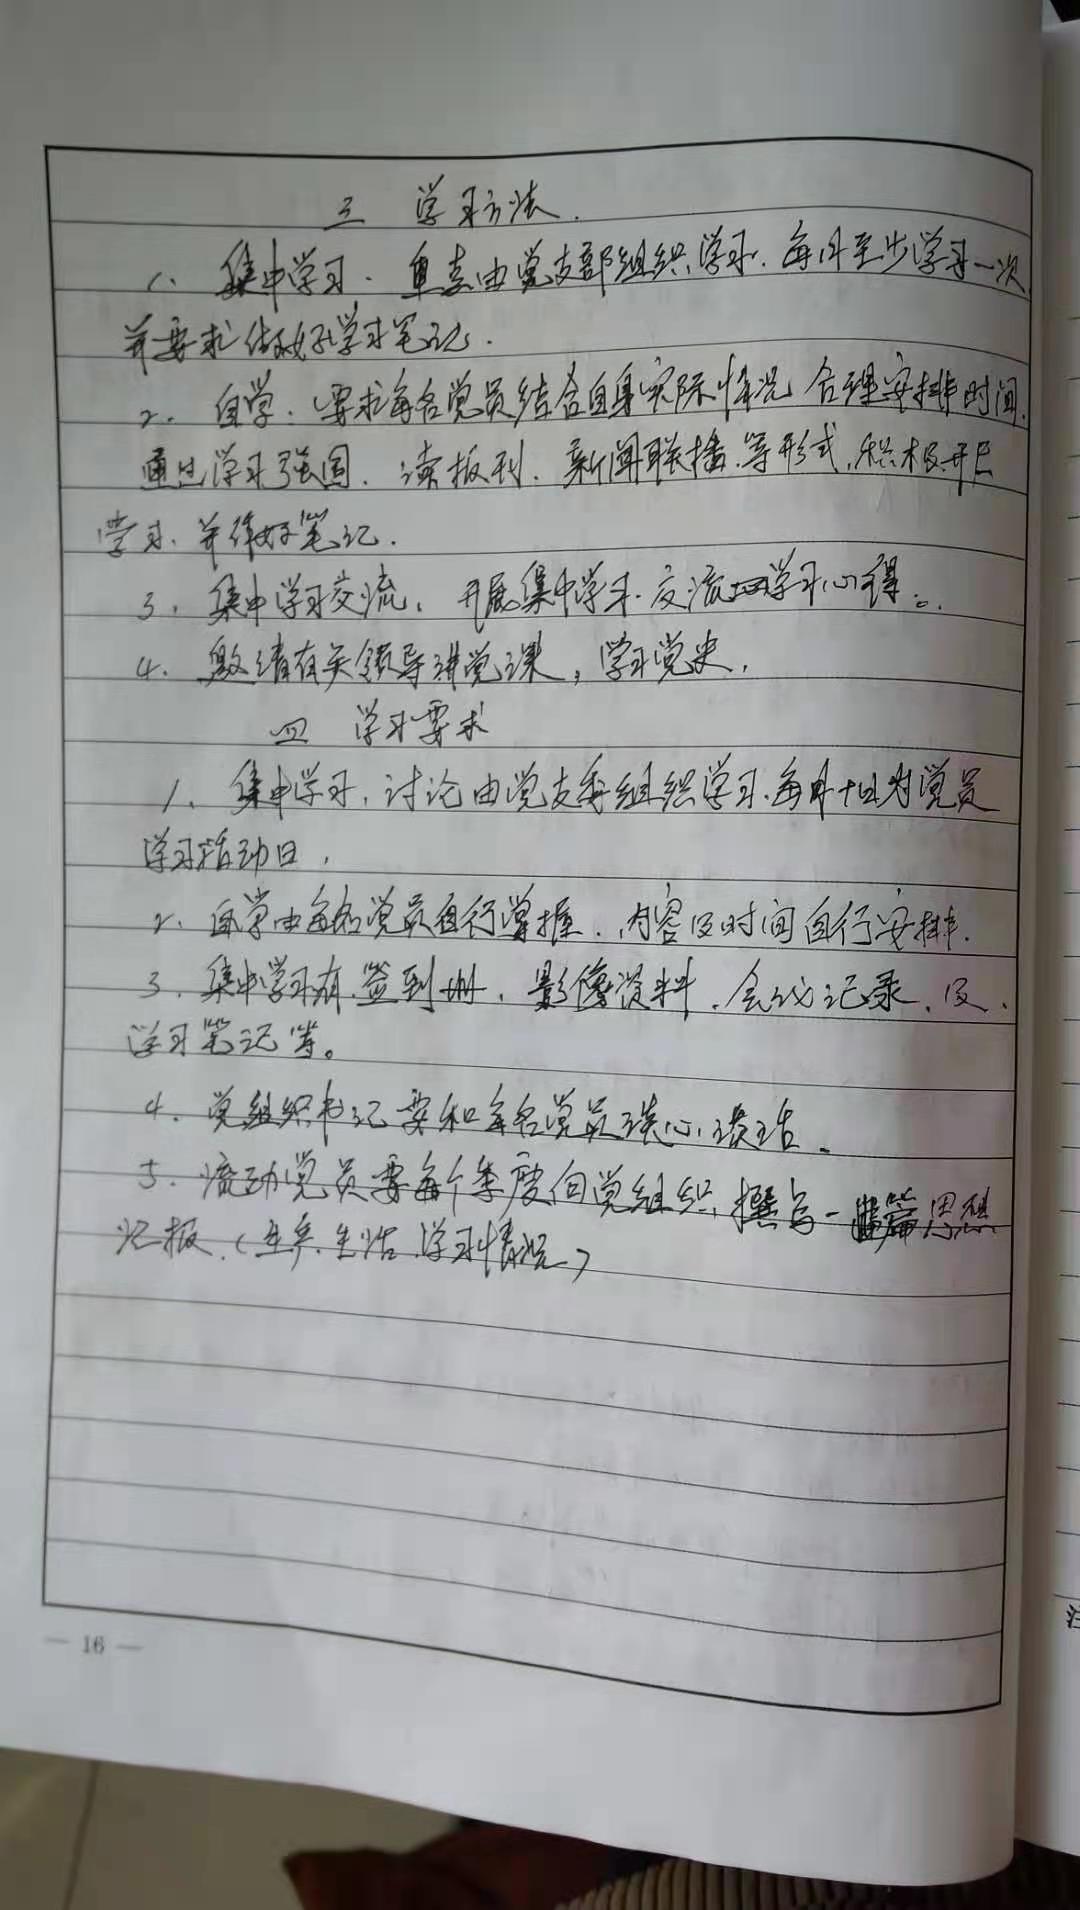 三 学习方法.
1. 集中学习. 由党支部组织学习. 每月至少学习一次
并要求做好学习笔记.
2. 自学. 要求每名党员结合自身实际情况 合理安排时间.
通过学习强国. 读报刊. 新闻联播.等形式.积极开展
学习. 并作好笔记.
3. 集中学习交流. 开展集中学习.交流学习心得。.
4. 邀请有关领导讲党课, 学习党史.
四 学习要求
1. 集中学习. 讨论由党支委组织学习.每月十日为党员
学习活动日.
2. 自学由每名党员自行掌握. 内容及时间自行安排.
3. 集中学习有.签到册. 影像资料. 会议记录. 及.
学习笔记等。
4. 党组织书记要和每名党员谈心谈话.
5. 流动党员要每个季度向党组织撰写一篇思想
汇报.(生产.生活.学习情况)
— 16 —
注